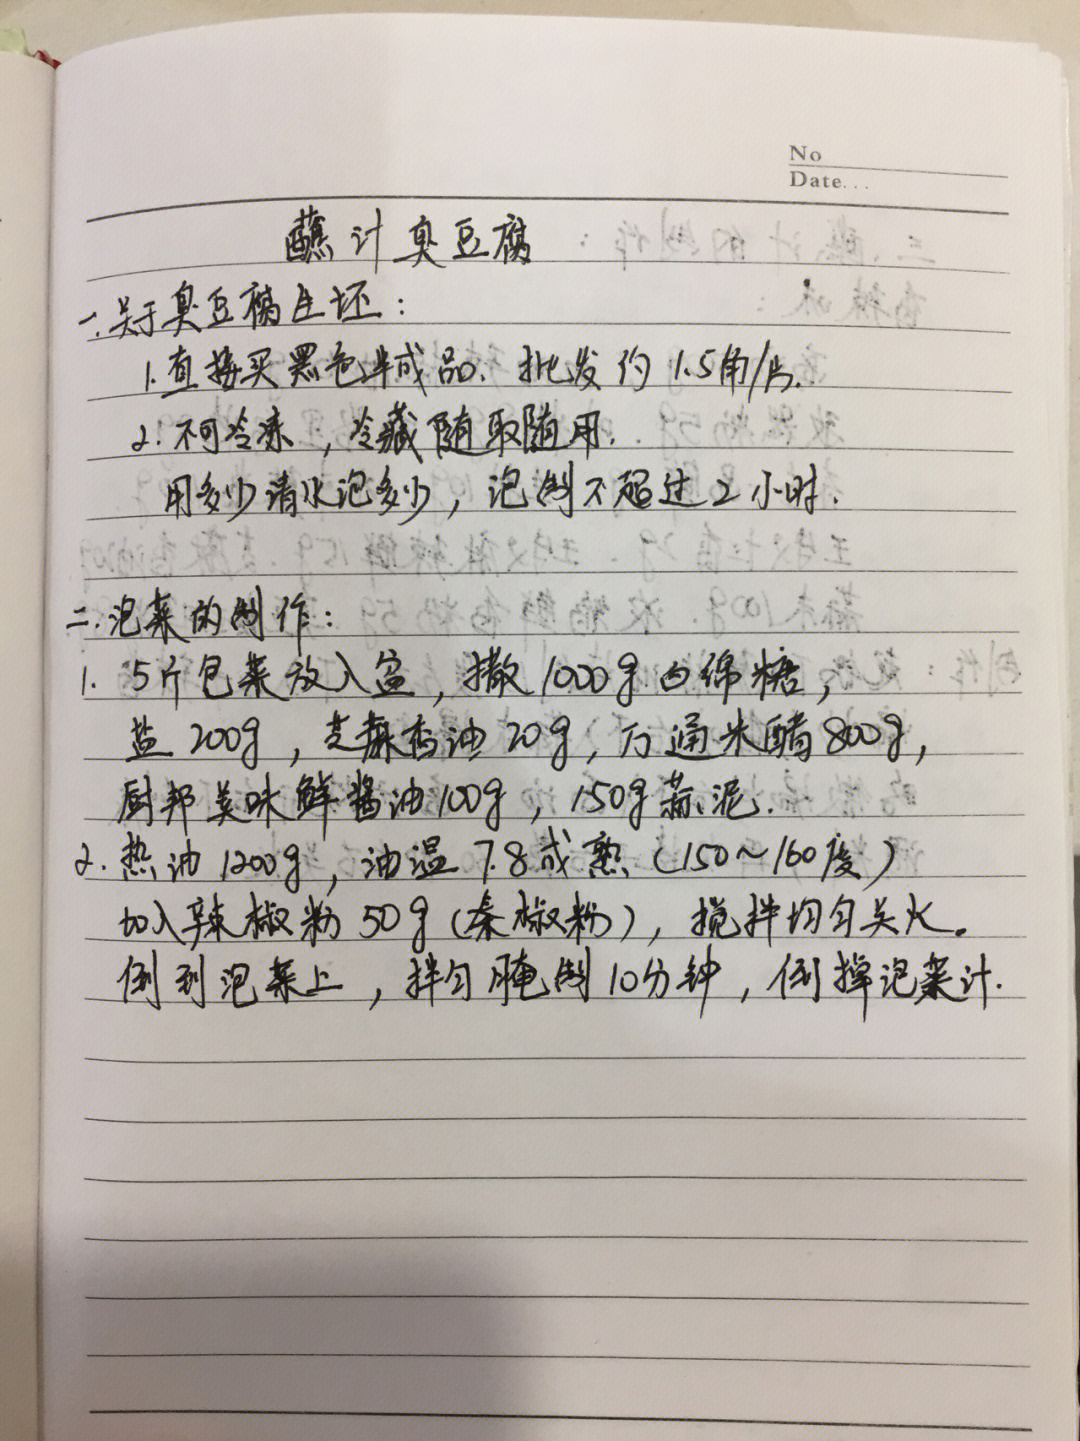 No
Date...
蘸汁臭豆腐
一.关于臭豆腐生坯:
1.直接买黑色半成品.批发约1.5角/片.
2.不可冷冻,冷藏随取随用.
用多少清水泡多少,泡制不超过2小时.
二.泡菜的制作:
1.5斤包菜放入盆,撒1000g白绵糖,
盐200g,芝麻香油20g,万通米醋800g,
厨邦美味鲜酱油100g,150g蒜泥.
2.热油1200g,油温7.8成熟(150~160度)
加入辣椒粉50g(秦椒粉),搅拌均匀关火。
倒到泡菜上,拌匀腌制10分钟,倒掉泡菜汁.